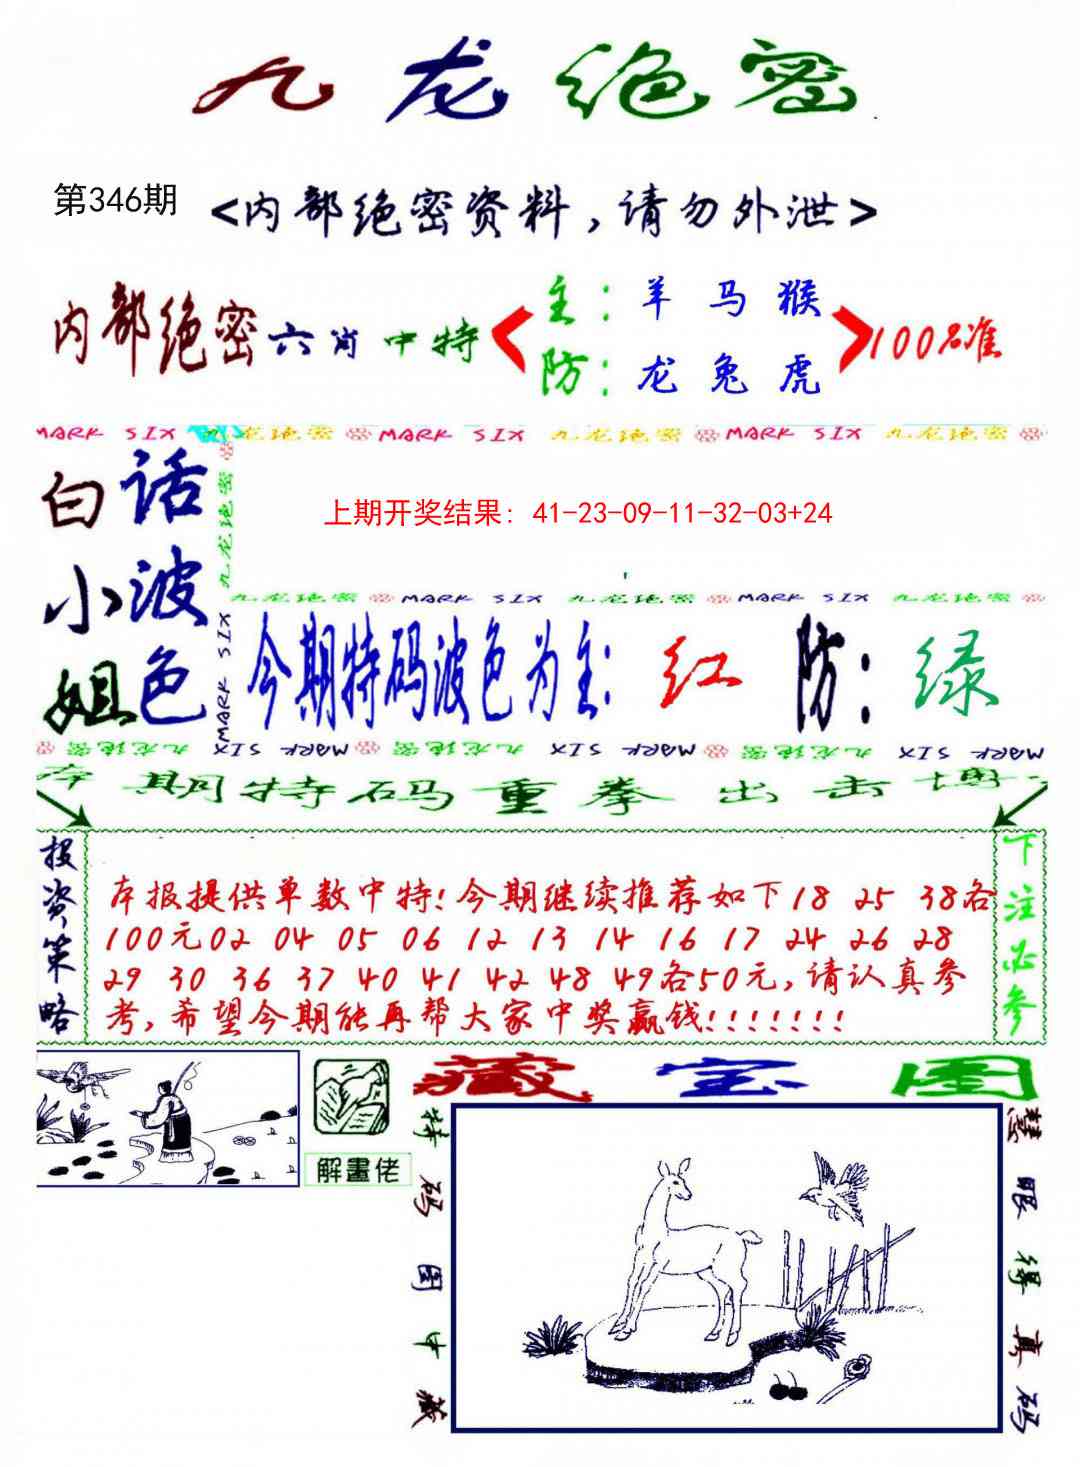 九龙绝密
第346期
<内部绝密资料,请勿外泄>
内部绝密六肖中特
主:羊 马 猴
防:龙 兔 虎
100%准
MARK SIX 九龙绝密 MARK SIX 九龙绝密 MARK SIX 九龙绝密
白话小姐波色
九龙绝密 MARK SIX
上期开奖结果: 41-23-09-11-32-03+24
九龙绝密 MARK SIX 九龙绝密 MARK SIX 九龙绝密
今期特码波色为主:红 防:绿
九龙绝密 MARK SIX 九龙绝密 MARK SIX 九龙绝密 MARK SIX
本期特码重拳出击博
投资策略
本报提供单数中特!今期继续推荐如下18 25 38各
100元02 04 05 06 12 13 14 16 17 24 26 28
29 30 36 37 40 41 42 48 49各50元,请认真参
考,希望今期能再帮大家中奖赢钱!!!!!!!
下注必参
解畫佬
藏宝图
特码图中藏
慧眼得真码